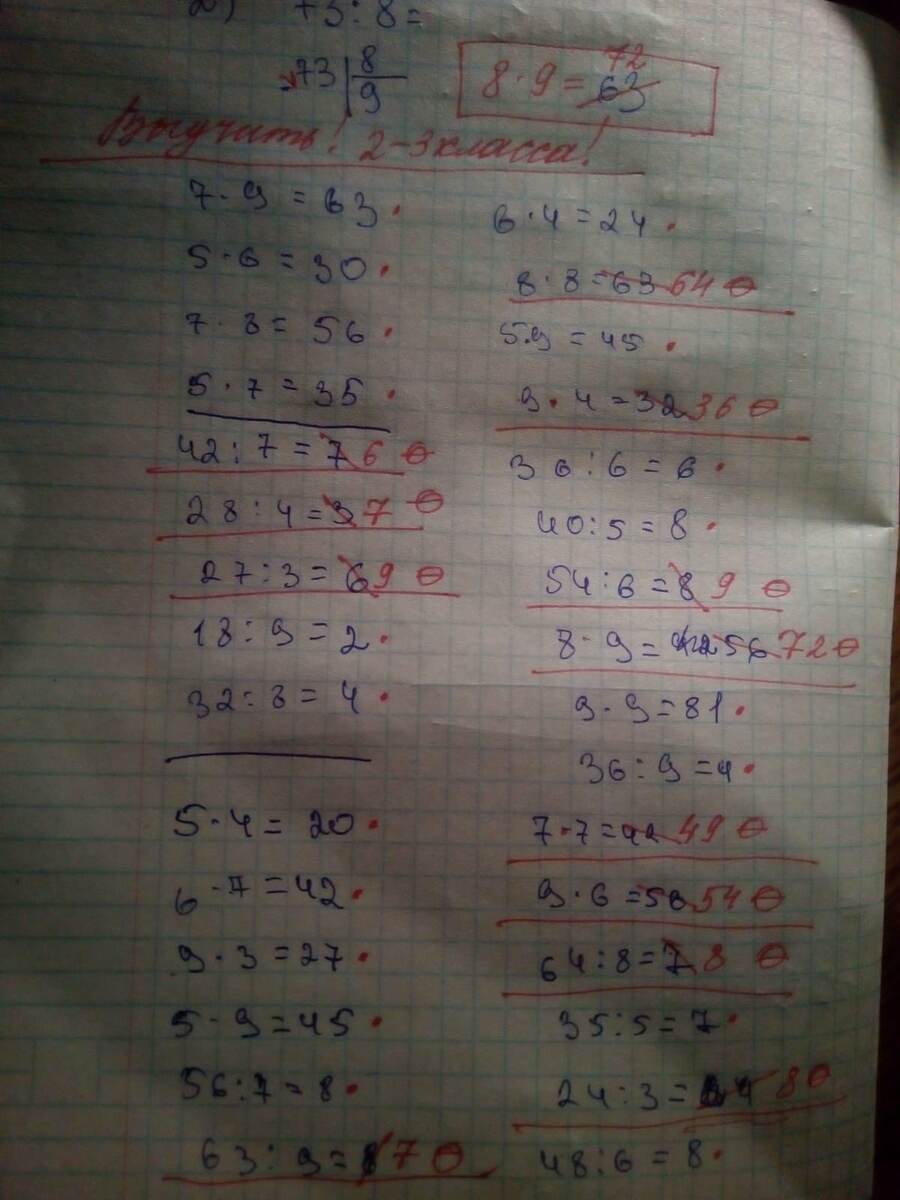 2) 73:8=
73 8
9
8·9= 63 72
Выучить! 2-3 класса!
7·9=63
5·6=30
7·8=56
5·7=35
42:7=7 6
28:4=3 7
27:3=6 9
18:9=2
32:8=4
5·4=20
6·7=42
9·3=27
5·9=45
56:7=8
63:9= 7
6·4=24
8·8=63 64
5·9=45
9·4=32 36
36:6=6
40:5=8
54:6=8 9
8·9= 56 72
9·9=81
36:9=4
7·7=42 49
9·6=56 54
64:8=7 8
35:5=7
24:3= 4 8
48:6=8